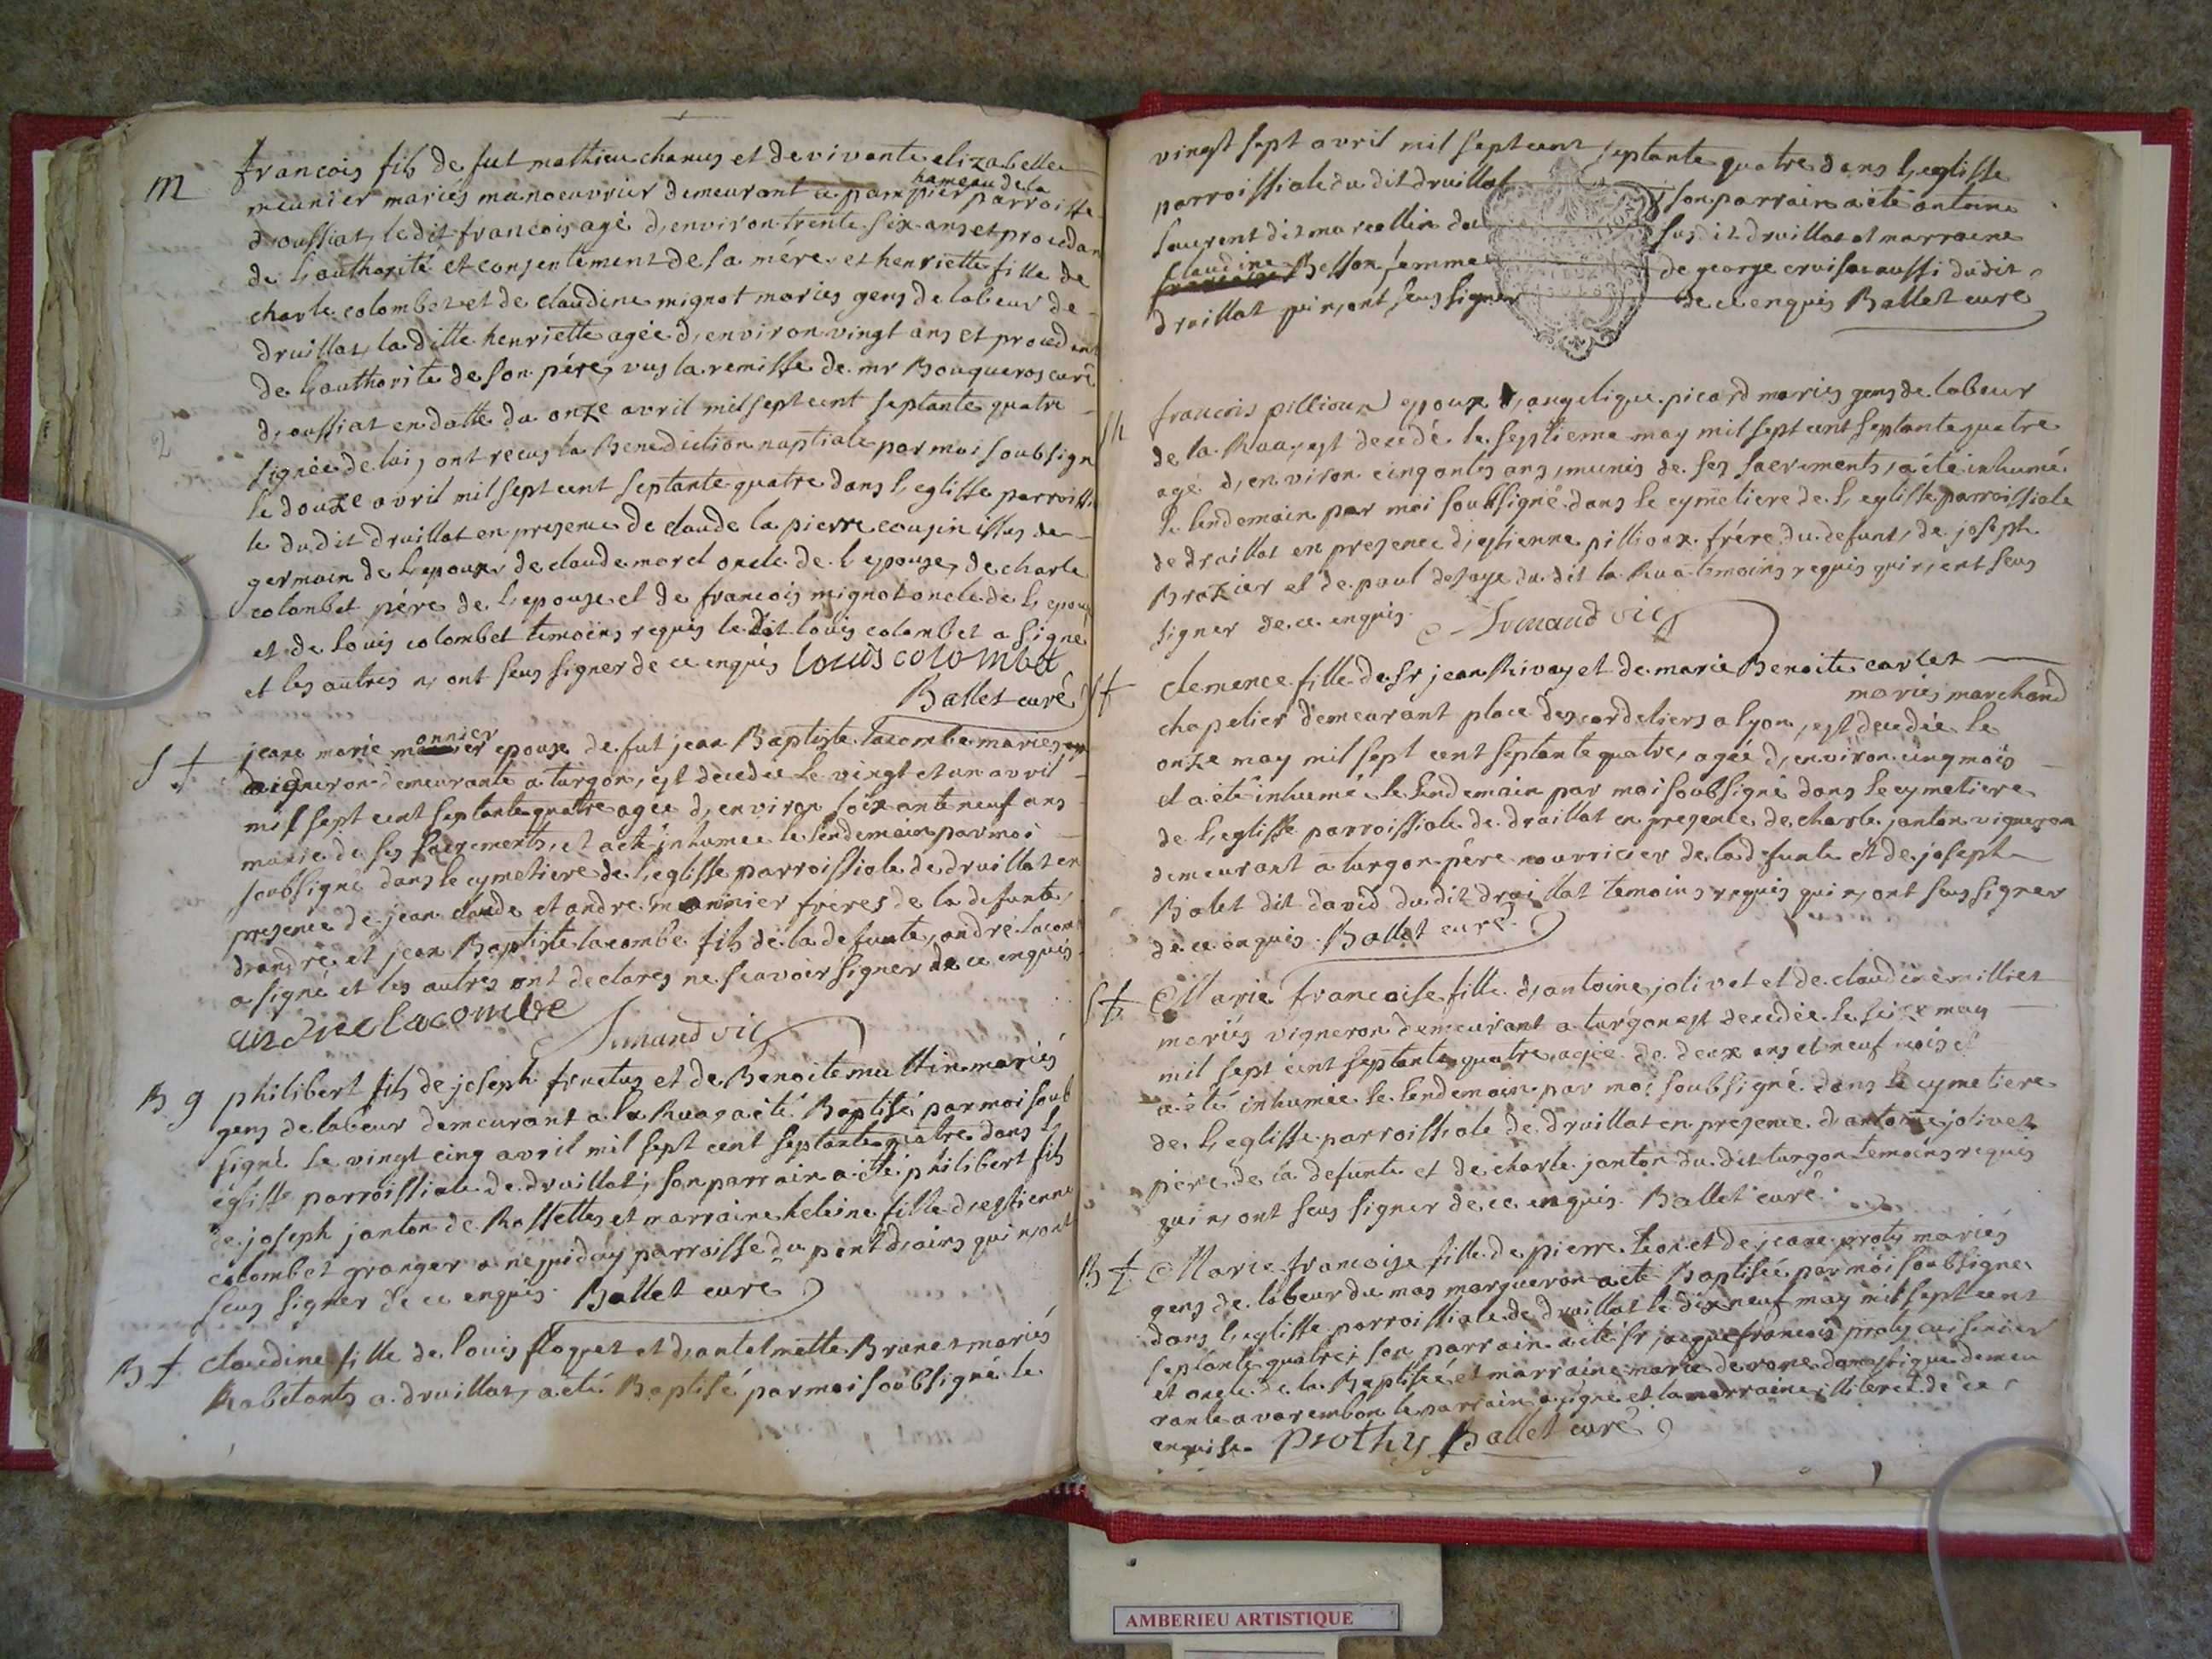 m francois fils de fut mathieu chanus et de vivante elizabelle
meunier mariés manoeuvrier demeurant a pampier hameau de la parroisse
d'oussiat, le dit francois agé d'environ trente six ans et procedan
de l'authorité et consentement de sa mére, et henriette fille de
charle colombet et de claudine mignot mariés gens de labeur de
druillat, la ditte henriette agée d'environ vingt ans et procedant
de l'authorité de son pére, vus la remisse de mr Bouqueros curé
d'oussiat en datte du onze avril mil sept cent septante quatre
2
signée de lui, ont recus la Benediction nuptiale par moi soubsigné
le douze avril mil sept cent septante quatre dans l'eglisse parroissia
le du dit druillat en presence de claude la pierre cousin issus de
germain de l'epoux, de claude morel oncle de l'epouse, de charle
colombet pére de l'epouse et de francois mignot oncle de l'epouse
et de louis colombet temoins requis le dit louis colombet a signé
et les autres n'ont seus signer de ce enquis louis colombet
Ballet curé
S f jeane marie monnier epouse de fut jean Baptiste lacombe mariés
vigneron demeurante a turgon, est decedée le vingt et un avril
mil sept cent septante quatre agée d'environ soixante neuf ans
munie de ses sacrements, et a eté inhumée le lendemain par moi
soubsigné dans le cymetiere de l'eglisse parroissiale de druillat en
presence de jean claude et andré monnier fréres de la defunte,
d'andré et jean Baptiste lacombe fils de la defunte, andré lacom
a signé et les autres ont declares ne scavoir signer de ce enquis
andre lacombe
Armand vic
B g philibert fils de joseph fructus et de Benoite multin mariés
gens de labeur demeurant a la Rua, a eté Baptisé par moi soub
signé le vingt cinq avril mil sept cent septante quatre dans l'
églisse parroissiale de druillat; son parrain a eté philibert fils
de joseph janton de Rossettes et marraine heleine fille d'estienne
colombet granger a neyriday parroisse du pont d'ains qui n'ont
seus signer de ce enquis Ballet curé
B f claudine fille de louis floquet et d'antelmette Brunet mariés
habetants a druillat, a eté Baptisé par moi soubsigné le
vingt sept avril mil sept cent septante quatre dans l'eglisse
parroissiale du dit druillat son parrain a eté antoine
laurent dit marcellin du sus dit druillat et marraine
claudine Besson femme de george cruisat aussi du dit
druillat qui n'ont seus signer de ce enquis Ballet curé
S h francois pillioux epoux d'angelique picard mariés gens de labeur
de la Rua, est decedé le septieme may mil sept cent septante quatre
agé d'environ cinquante ans, munis de ses sacrements, a eté inhumé
le lendemain par moi soubsigné dans le cymetiere de l'eglisse parroissiale
de druillat en presence d'estienne pillioux frére du defunt, de joseph
Brazier et de paul desaye du dit la Rua temoins requis qui n'ont seus
signer de ce enquis Armand vic
S f clemence fille de sr jean Rivay et de marie Benoite carlet
mariés marchand
chapelier demeurant place des cordeliers a lyon, est decedée le
onze may mil sept cent septante quatre, agée d'environ cinq mois
et a eté inhumé le lendemain par moi soubsigné dans le cymetiere
de l'eglisse parroissiale de druillat en presence de charle janton vigneron
demeurant a turgon pére nourricier de la defunte et de joseph
Balet dit david du dit druillat temoins requis qui n'ont seus signer
de ce enquis Ballet curé
S f Marie francoise fille d'antoine jolivet et de claudine milliet
mariés vigneron demeurant a turgon est decedée le seize may
mil sept cent septante quatre agée de deux ans et neuf mois et
a eté inhumée le lendemain par moi soubsigné dans le cymetiere
de l'eglisse parroissiale de druillat en presence d'antoine jolivet
pere de la defunte et de charle janton du dit turgon temoins requis
qui n'ont seus signer de ce enquis Ballet curé
B f Marie francoise fille de pierre teon et de jeane proty mariés
gens de labeur du mas margueron a eté Baptisée par moi soubsigné
dans l'eglisse parroissiale de druillat le dix neuf may mil sept cent
septante quatre; son parrain a eté sr jacque francois proty cuisinier
et oncle de la Baptisée et marraine marie derone domestique demeu
rante a varembon le parrain a signé et la marraine illiteret de ce
enquise Prothy Ballet curé
AMBERIEU ARTISTIQUE